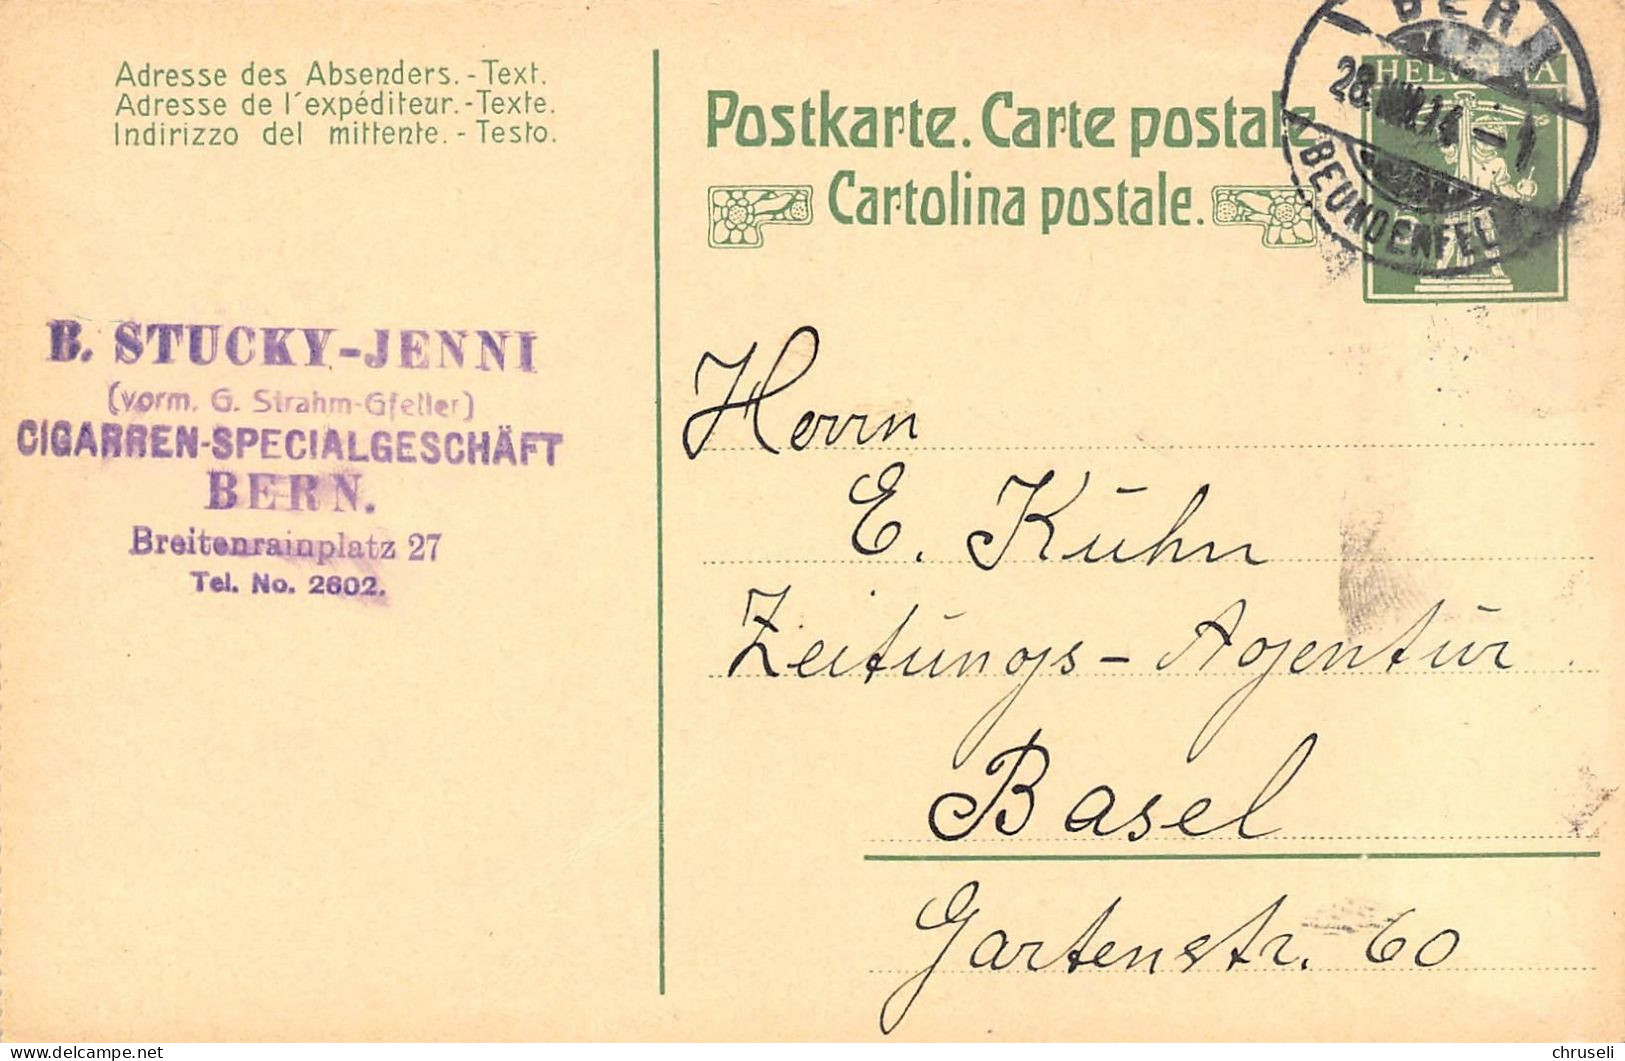 Adresse des Absenders. - Text.
Adresse de l'expéditeur. - Texte.
Indirizzo del mittente. - Testo.
Postkarte. Carte postale.
Cartolina postale.
HELVETIA
BERN
BEUNDENFELD
B. STUCKY-JENNI
(vorm. G. Strahm-Gfeller)
CIGARREN-SPECIALGESCHÄFT
BERN.
Breitenrainplatz 27
Tel. No. 2602.
Herrn
E. Kuhn
Zeitungs - Agentur
Basel
Gartenstr. 60
delcampe.net
chruseli